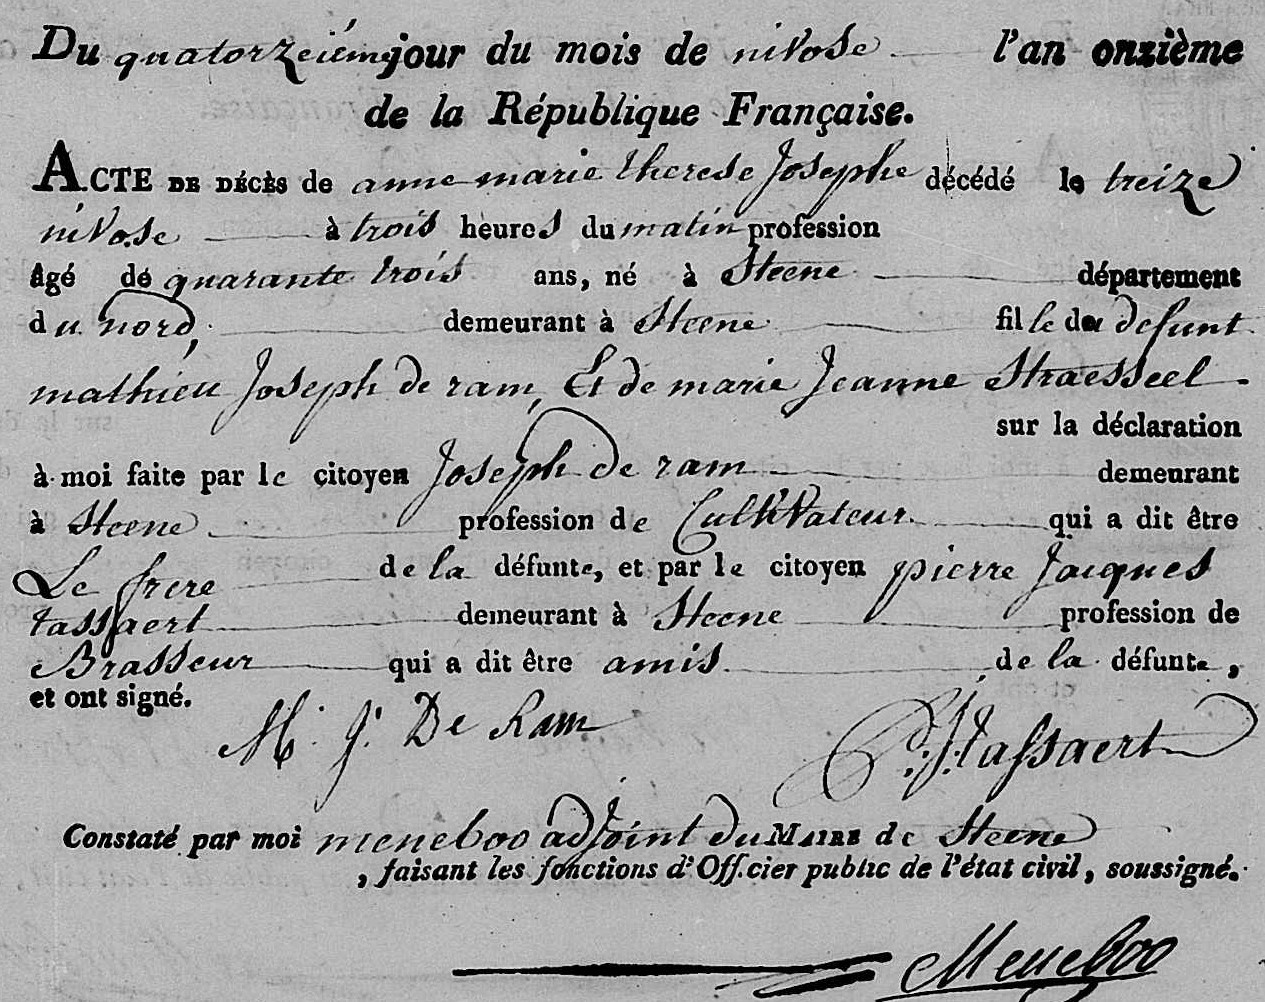 Du quatorzeiéme jour du mois de nivose l'an onzième
de la République Française.
ACTE DE DÉCÈS de anne marie therese Josephe décédé le treize
nivose à trois heures du matin profession
âgé de quarante trois ans, né à Steene département
du nord, demeurant à Steene fille de defunt
mathieu Joseph de ram, Et de marie Jeanne Straesseel.
sur la déclaration
à moi faite par le citoyen Joseph de ram demeurant
à Steene profession de Cultivateur qui a dit être
Le frere de la défunte, et par le citoyen pierre Jacques
tassaert demeurant à Steene profession de
Brasseur qui a dit être amis de la défunte,
et ont signé.
M. J. De Ram P. J. tassaert
Constaté par moi meneboo adjoint du MAIRE de Steene
, faisant les fonctions d'Officier public de l'état civil, soussigné.
Meneboo